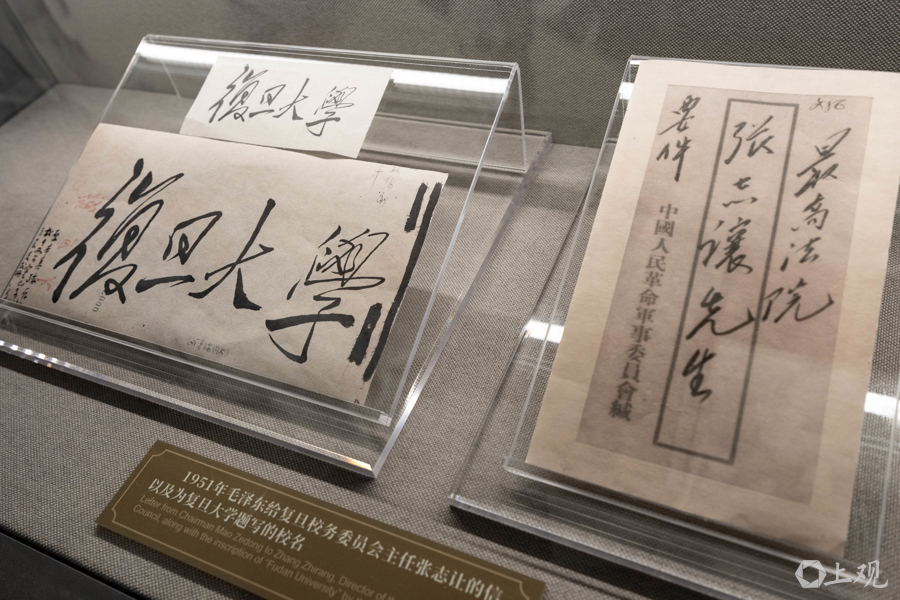 復旦大學
復旦大學
最高法院
張志讓先生
要件
中國人民革命軍事委員會緘
1951年毛泽东给复旦校务委员会主任张志让的信
以及为复旦大学题写的校名
Letter from Chairman Mao Zedong to Zhang Zhirang, Director of
Council, along with the inscription of "Fudan University"
上观